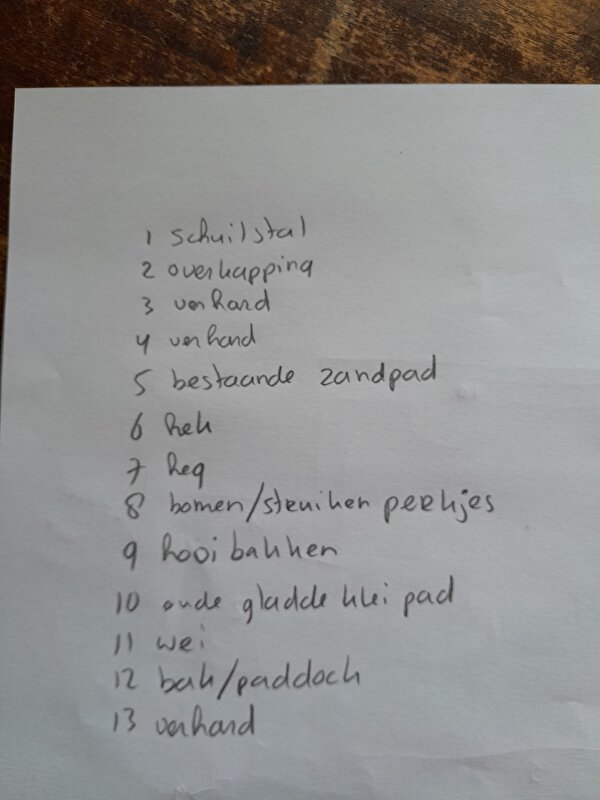 1 schuilstal
2 overkapping
3 verhard
4 verhard
5 bestaande zandpad
6 hek
7 heg
8 bomen/struiken perkjes
9 hooi bakken
10 oude gladde klei pad
11 wei
12 bak/paddock
13 verhard